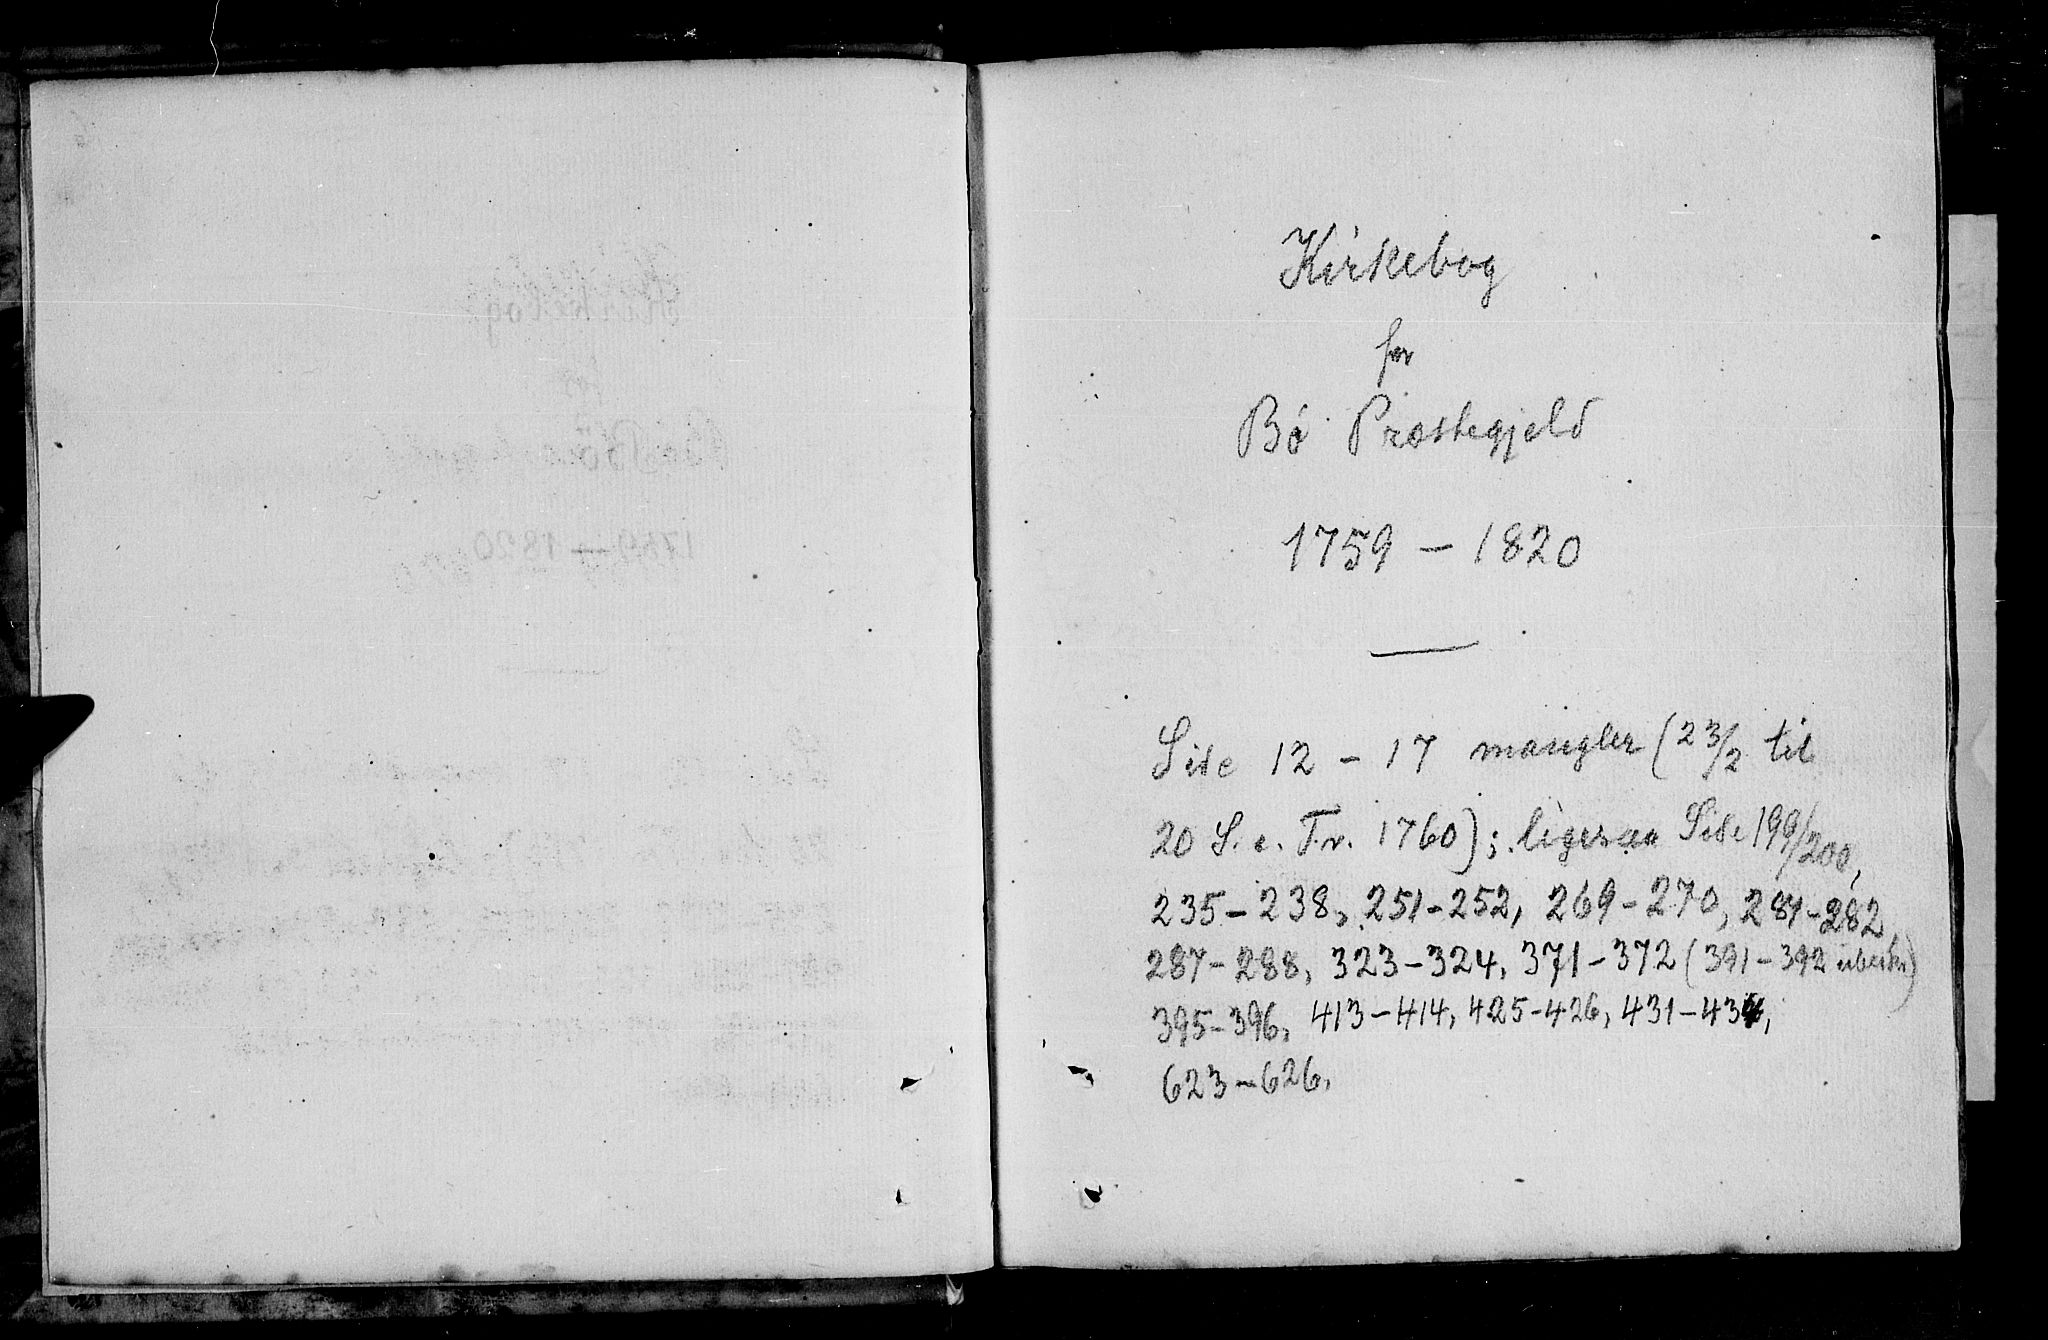 Kirkebog
for
Bø Præstegjeld
1759 - 1820
Side 12 - 17 mangler (23/2 til
20 S. e. Tr. 1760); ligesaa Side 199/200,
235-238, 251-252, 269-270, 281-282,
287-288, 323-324, 371-372 (391-392 ubeskr)
395-396, 413-414, 425-426, 431-434,
623-626.